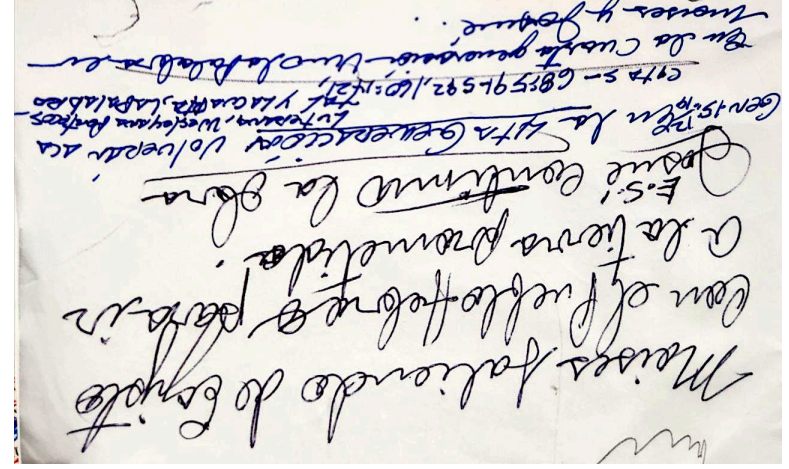 Moises saliendo de Egipto
con el pueblo Hebreo para ir
a la tierra prometida.
E.S.!
Josué continuó la obra
Gen-15: En la 4ta Generación volverán acá
Luterana, Wesleyana Pentecos-
tal y La cuarta, La Palabra
En la Cuarta generación Vino la Palabra en
Moises y Josué.